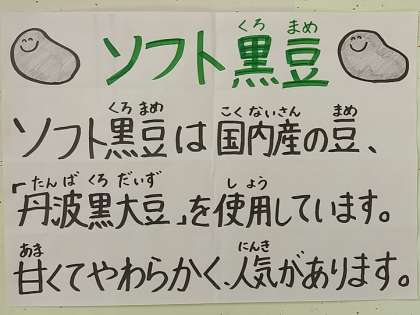 ソフト黒豆
くろ まめ
ソフト黒豆は国内産の豆、
くろ まめ こくないさん まめ
「丹波黒大豆」を使用しています。
たんば くろ だいず しよう
甘くてやわらかく、人気があります。
あま にんき